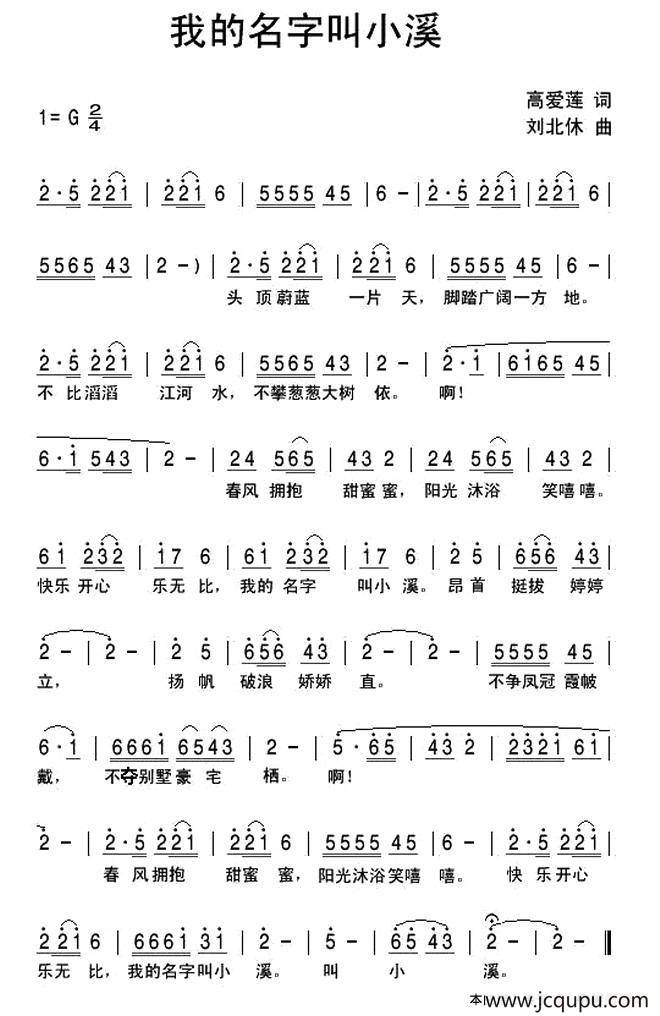 我的名字叫小溪
1= G 2/4
高爱莲 词
刘北休 曲
2·5 221 | 221 6 | 5555 45 | 6 - | 2·5 221 | 221 6 |
5565 43 | 2 - ) | 2·5 221 | 221 6 | 5555 45 | 6 - |
头 顶 蔚蓝 一片 天， 脚踏广阔一方 地。
2·5 221 | 221 6 | 5565 43 | 2 - | 2·1 | 6165 45 |
不 比滔滔 江河 水， 不攀葱葱大树 依。 啊！
6·1 543 | 2 - | 24 565 | 43 2 | 24 565 | 43 2 |
春风 拥抱 甜蜜 蜜， 阳光 沐浴 笑嘻 嘻。
61 232 | 17 6 | 61 232 | 17 6 | 2 5 | 656 43 |
快乐 开心 乐无 比， 我的 名字 叫小 溪。 昂 首 挺拔 婷婷
2 - | 2 - | 2 5 | 656 43 | 2 - | 2 - | 5555 45 |
立， 扬 帆 破浪 娇娇 直。 不争凤冠 霞帔
6·1 | 6661 6543 | 2 - | 5·65 | 43 2 | 2321 61 |
戴， 不夺别墅 豪 宅 栖。 啊！
2 - | 2·5 221 | 221 6 | 5555 45 | 6 - | 2·5 221 |
春 风拥抱 甜蜜 蜜， 阳光沐浴笑嘻 嘻。 快 乐开心
221 6 | 6661 31 | 2 - | 5 - | 65 43 | 2 - | 2 - ‖
乐无 比， 我的名字叫小 溪。 叫 小 溪。
www.jcqupu.com